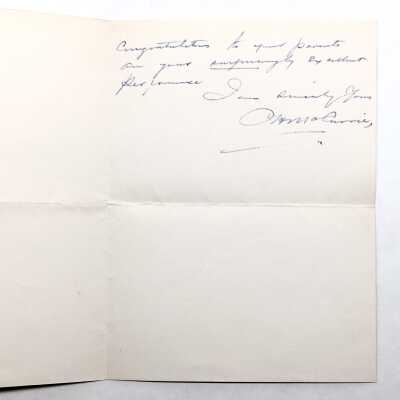 Congratulations to your parents
on your surprisingly excellent
performance
I am sincerely Yours